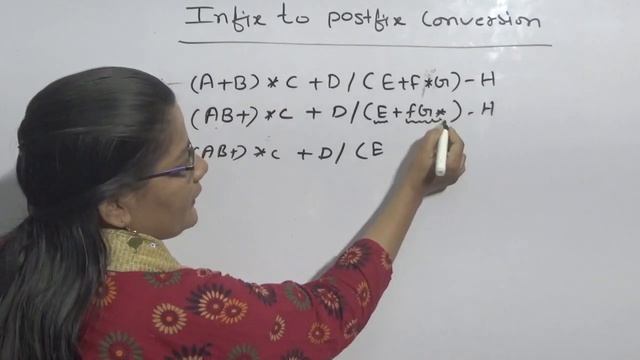 Infix to postfix conversion
(A+B)*C+D/(E+f*G)-H
(AB+)*C+D/(E+fG*)-H
(AB+)*C+D/(E